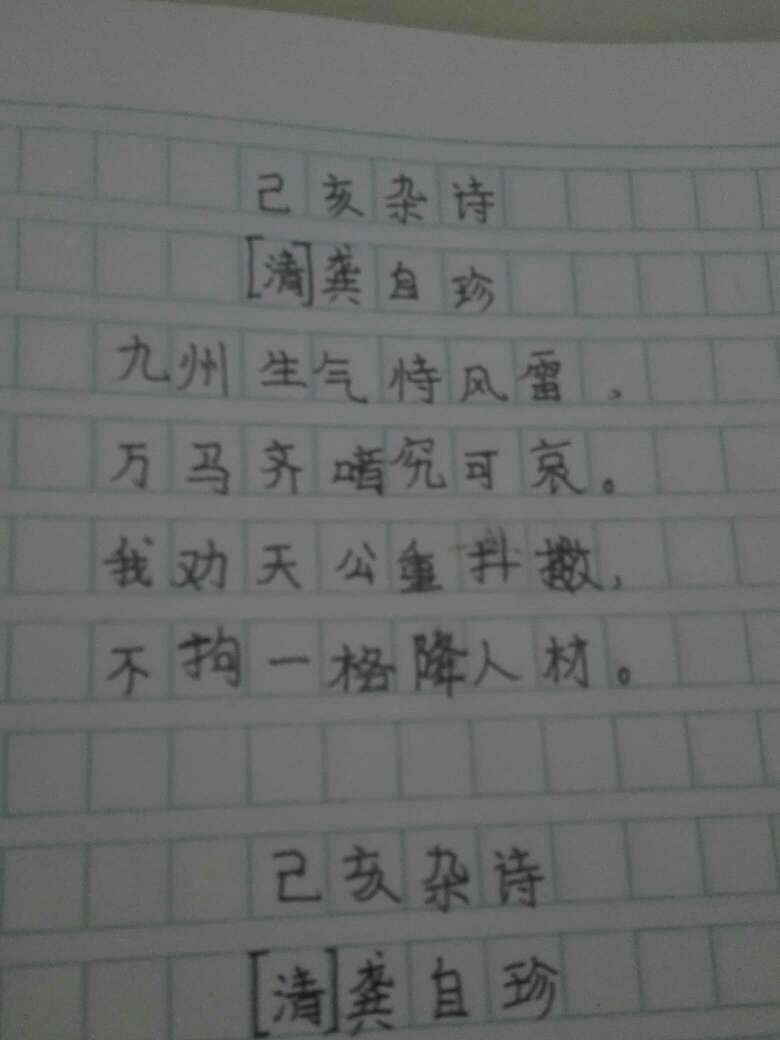 己亥杂诗
[清]龚自珍
九州生气恃风雷，
万马齐喑究可哀。
我劝天公重抖擞，
不拘一格降人材。
己亥杂诗
[清]龚自珍